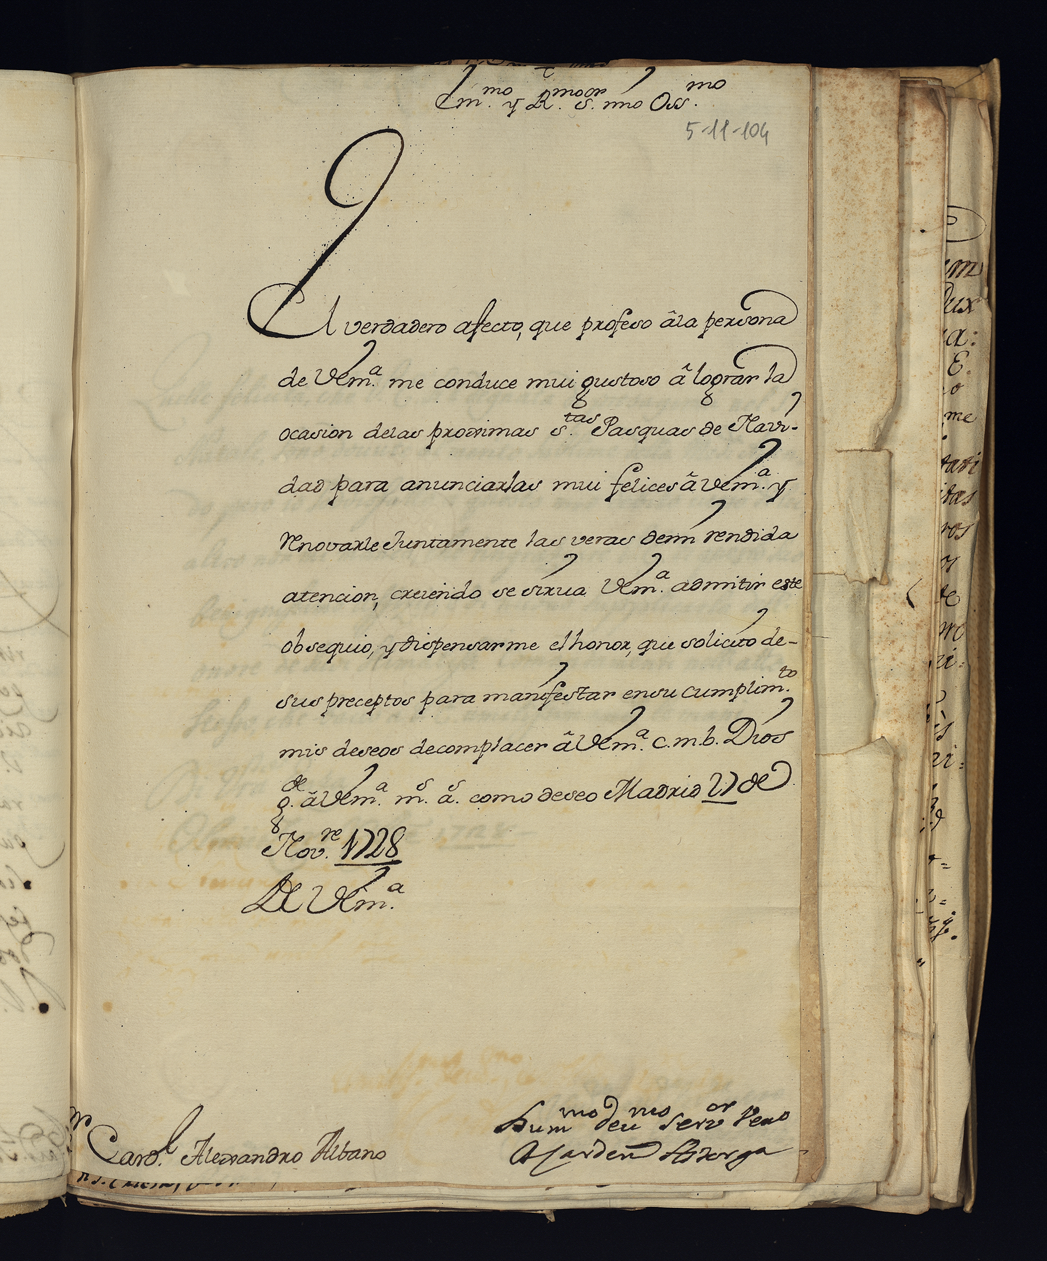 Em.mo y R.mo s.or mio Oss.mo
5-11-104
El verdadero afecto, que profeso âla persona
de VEm.a me conduce mui gustoso â lograr la
ocasion delas proximas s.tas Pasquas de Navi-
dad para anunciarlas mui felices â VEm.a y
renovarle Juntamente las veras demi rendida
atencion, creiendo se sirua VEm.a admitir este
obsequio, y dispensarme el honor, que solicito de-
sus preceptos para manifestar ensu cumplim.to
mis deseos decomplacer â VEm.a c.m.b. Dios
g.de â VEm.a m.s a.s como deseo Madrid 27 de
Nov.re 1728
De VEm.a
Hum.mo deu.mo Ser.or Vero
El Carden Astorga
S.r Card.l Alexandro Albano